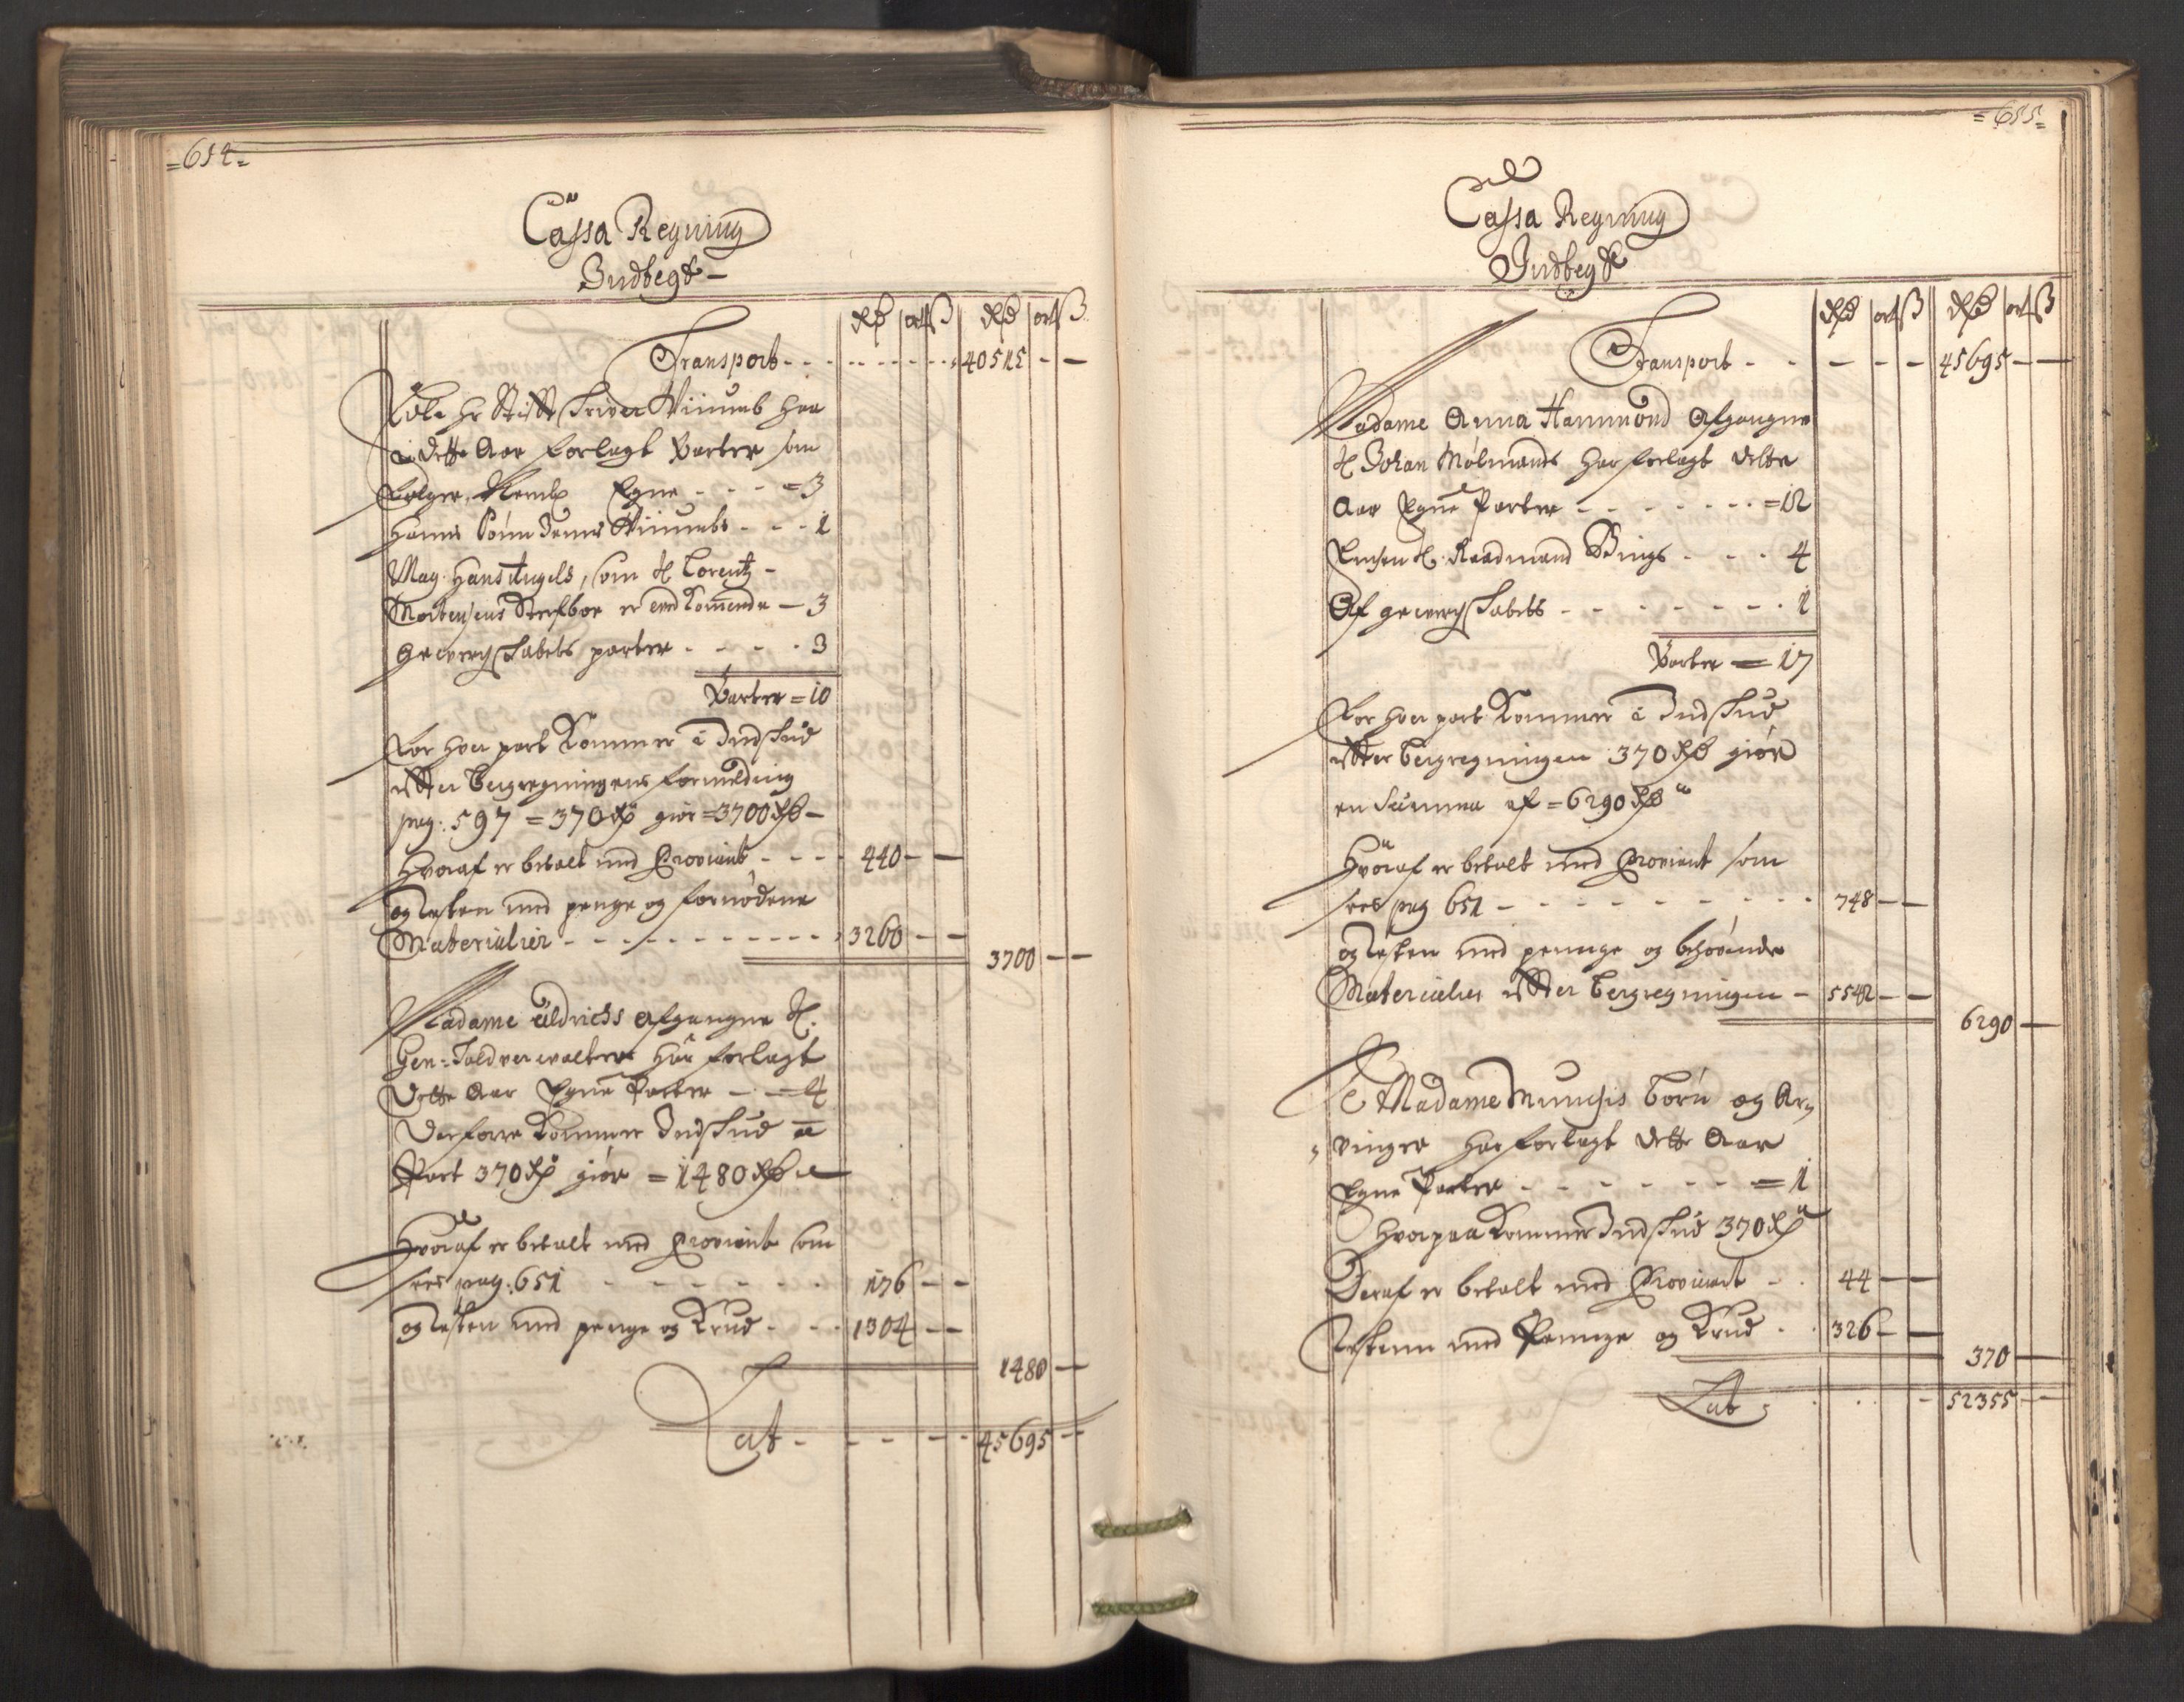 =654=
Cassa Regning
Indtegt –
Rd ort ß Rd ort ß
Transport - - - - - - - 40515 - -
Edle Hr Stiftskriver Wiinmb har
i dette Aar forlagt Parter som
følger, Nemlig Egne - - - = 3
Hanns Sönn Jenns Wiinmbs - - - 1
Mag. Hans Angels, som H Lorentz –
Mortensens Sterfboe er ved Kommende – 3
Grewerschabets parter - - - - 3
Parter = 10
For hver part Kommer i Indskud
efter Bergregningens formelding
pag: 597 = 370 Rd giør = 3700 Rd –
Hvoraf er betalt med Proviant - - - 440 - -
og resten med penge og fornødene
Materialier - - - - - - - - - - - 3260 - -
3700 - -
Madame Uldrichs afgangne H.
Gen: Toldverwalter har forlagt
dette Aar Egne Parter - - = 4
Derforre Kommer Indskud a
Part 370 Rd giør = 1480 Rd
Hvoraf er betalt med Proviant som
sees pag: 651 - - - - - - - 176 - -
og resten med penge og Krud - - - 1304 - -
1480 -
Lat - - - - - 45695 - -
=655=
Cassa Regning
Indtegt
Rd ort ß Rd ort ß
Transport - - - - - 45695 - -
Madame Anna Hammond Afgangne
H Johan Mølmands har forlagt dette
Aar Egne Parter - - - - - - - = 12
Ensen H. Raadmand Bings - - - 4
Af grewerschabets - - - - - - - 1
Parter = 17
For hver part Kommer i Indskud
efter Bergregningen 370 Rd giør
en Summa af = 6290 Rd
Hvoraf er betalt med Proviant som
sees pag 651 - - - - - - - - - 748 - -
og resten med pennge og behøvende
Materialier efter Bergregningen - 5542 - -
6290 -
Madame Munchs Børn og Ar=
vinger har forlagt dette Aar
Egne Parter - - - - - - = 1
Hvorpaa Kommer Indskud 370 Rd
Deraf er betalt med Proviant - - 44 - -
restenn med Pennge og Krud - - 326 - -
370 -
Lat - - - 52355 - -